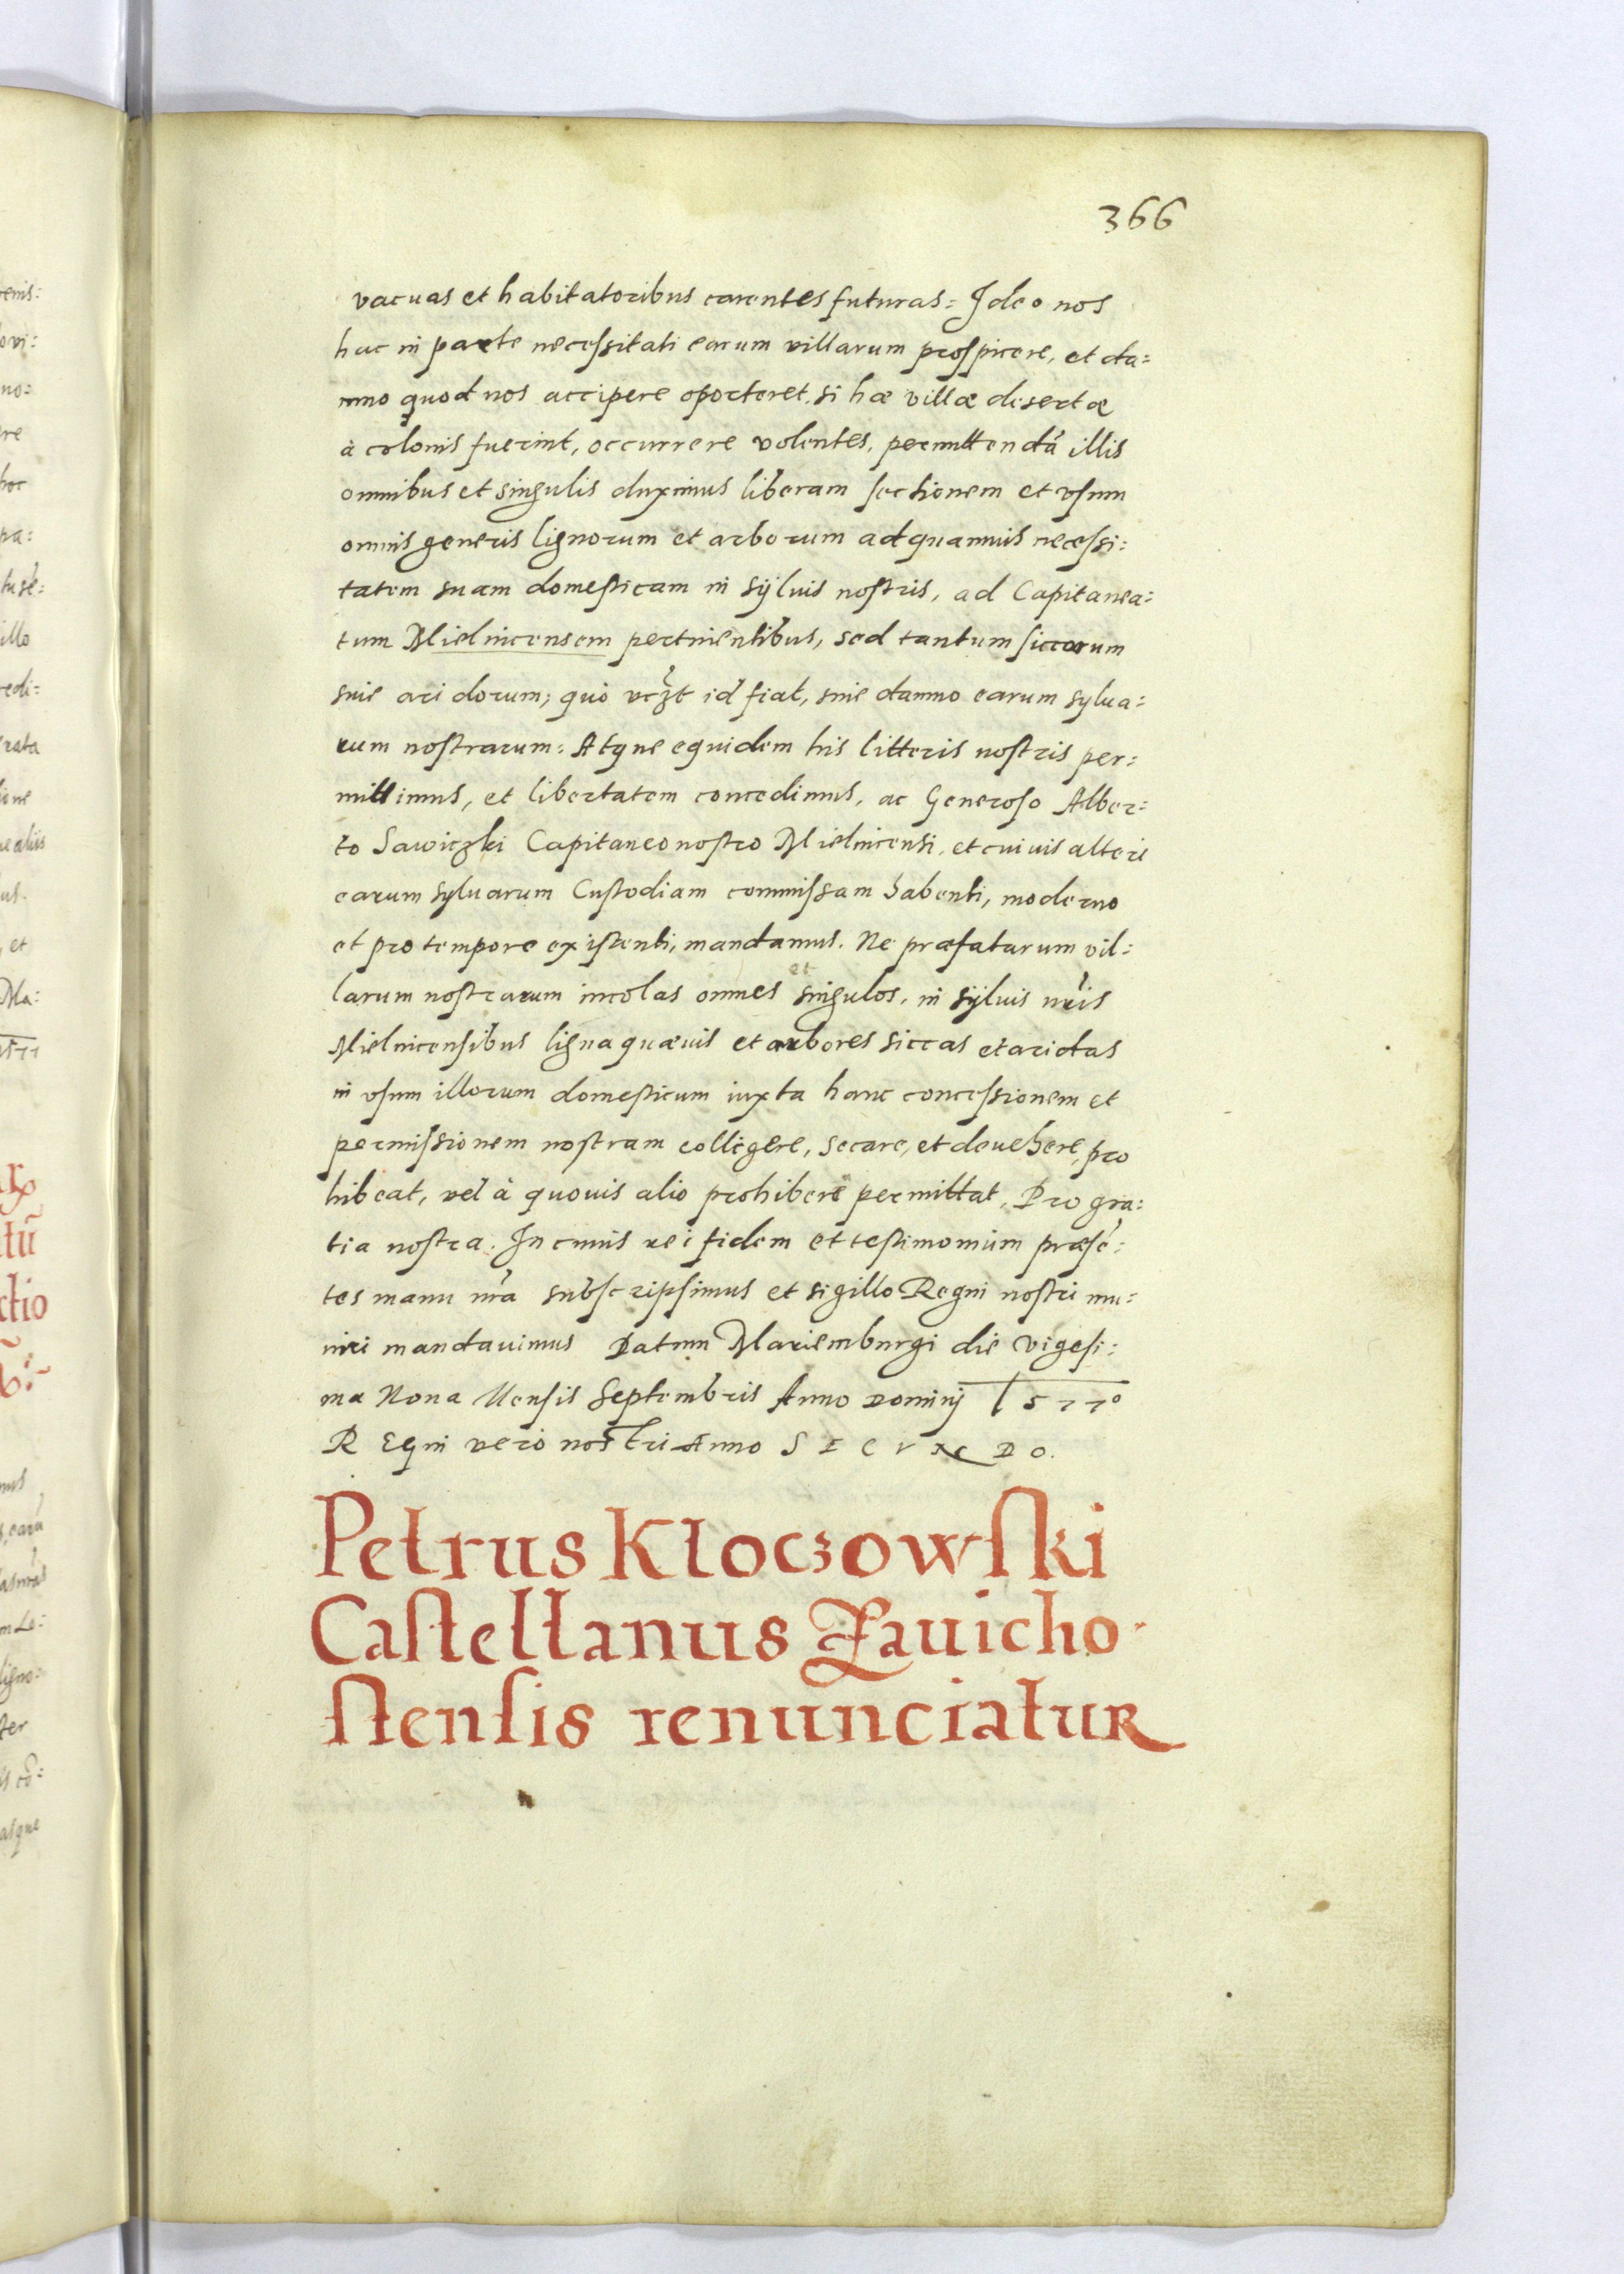 366
vacuas et habitatoribus carentes futuras: Ideo nos
hac in parte necessitati earum villarum prospicere, et da=
mno quod nos accipere oporteret, si hæ villæ desertæ
à colonis fuerint, occurrere volentes, permittendã illis
omnibus et singulis duximus liberam sectionem et vsum
omnis generis lignorum et arborum ad quamuis necessi:
tatem suam domesticam in sÿluis nostris, ad Capitanea:
tum Mielnicensem pertinentibus, sed tantum siccorum
siue aridorum; quò id fiat, sine damno earum sylua:
rum nostrarum: Atque equidem his litteris nostris per:
mittimus, et libertatem concedimus, ac Generoso Alber:
to Sawiczki Capitaneo nostro Mielnicensi, et cuiuis alteri
earum syluarum Custodiam commissam habenti, moderno
et pro tempore existenti, mandamus. Ne præfatarum vil:
larum nostrarum incolas omnes et singulos, in sÿluis nr̃is
Mielnicensibus ligna quæuis et arbores siccas et aridas
in vsum illorum domesticum iuxta hanc concessionem et
permissionem nostram colligere, secare, et deuehere, pro
hibeat, vel à quouis alio prohiberi permittat, Pro gra:
tia nostra. In cuius rei fidem et testimonium præsẽ:
tes manu nr̃a subscripsimus et sigillo Regni nostri mu:
niri mandauimus Datum Mariemburgi die vigesi:
ma Nona Mensis Septembris Anno Dominij 1577º
REgni verò nostri Anno SECVNDO.
Petrus Kloczowski
Castellanus Zauicho-
stensis renunciatur